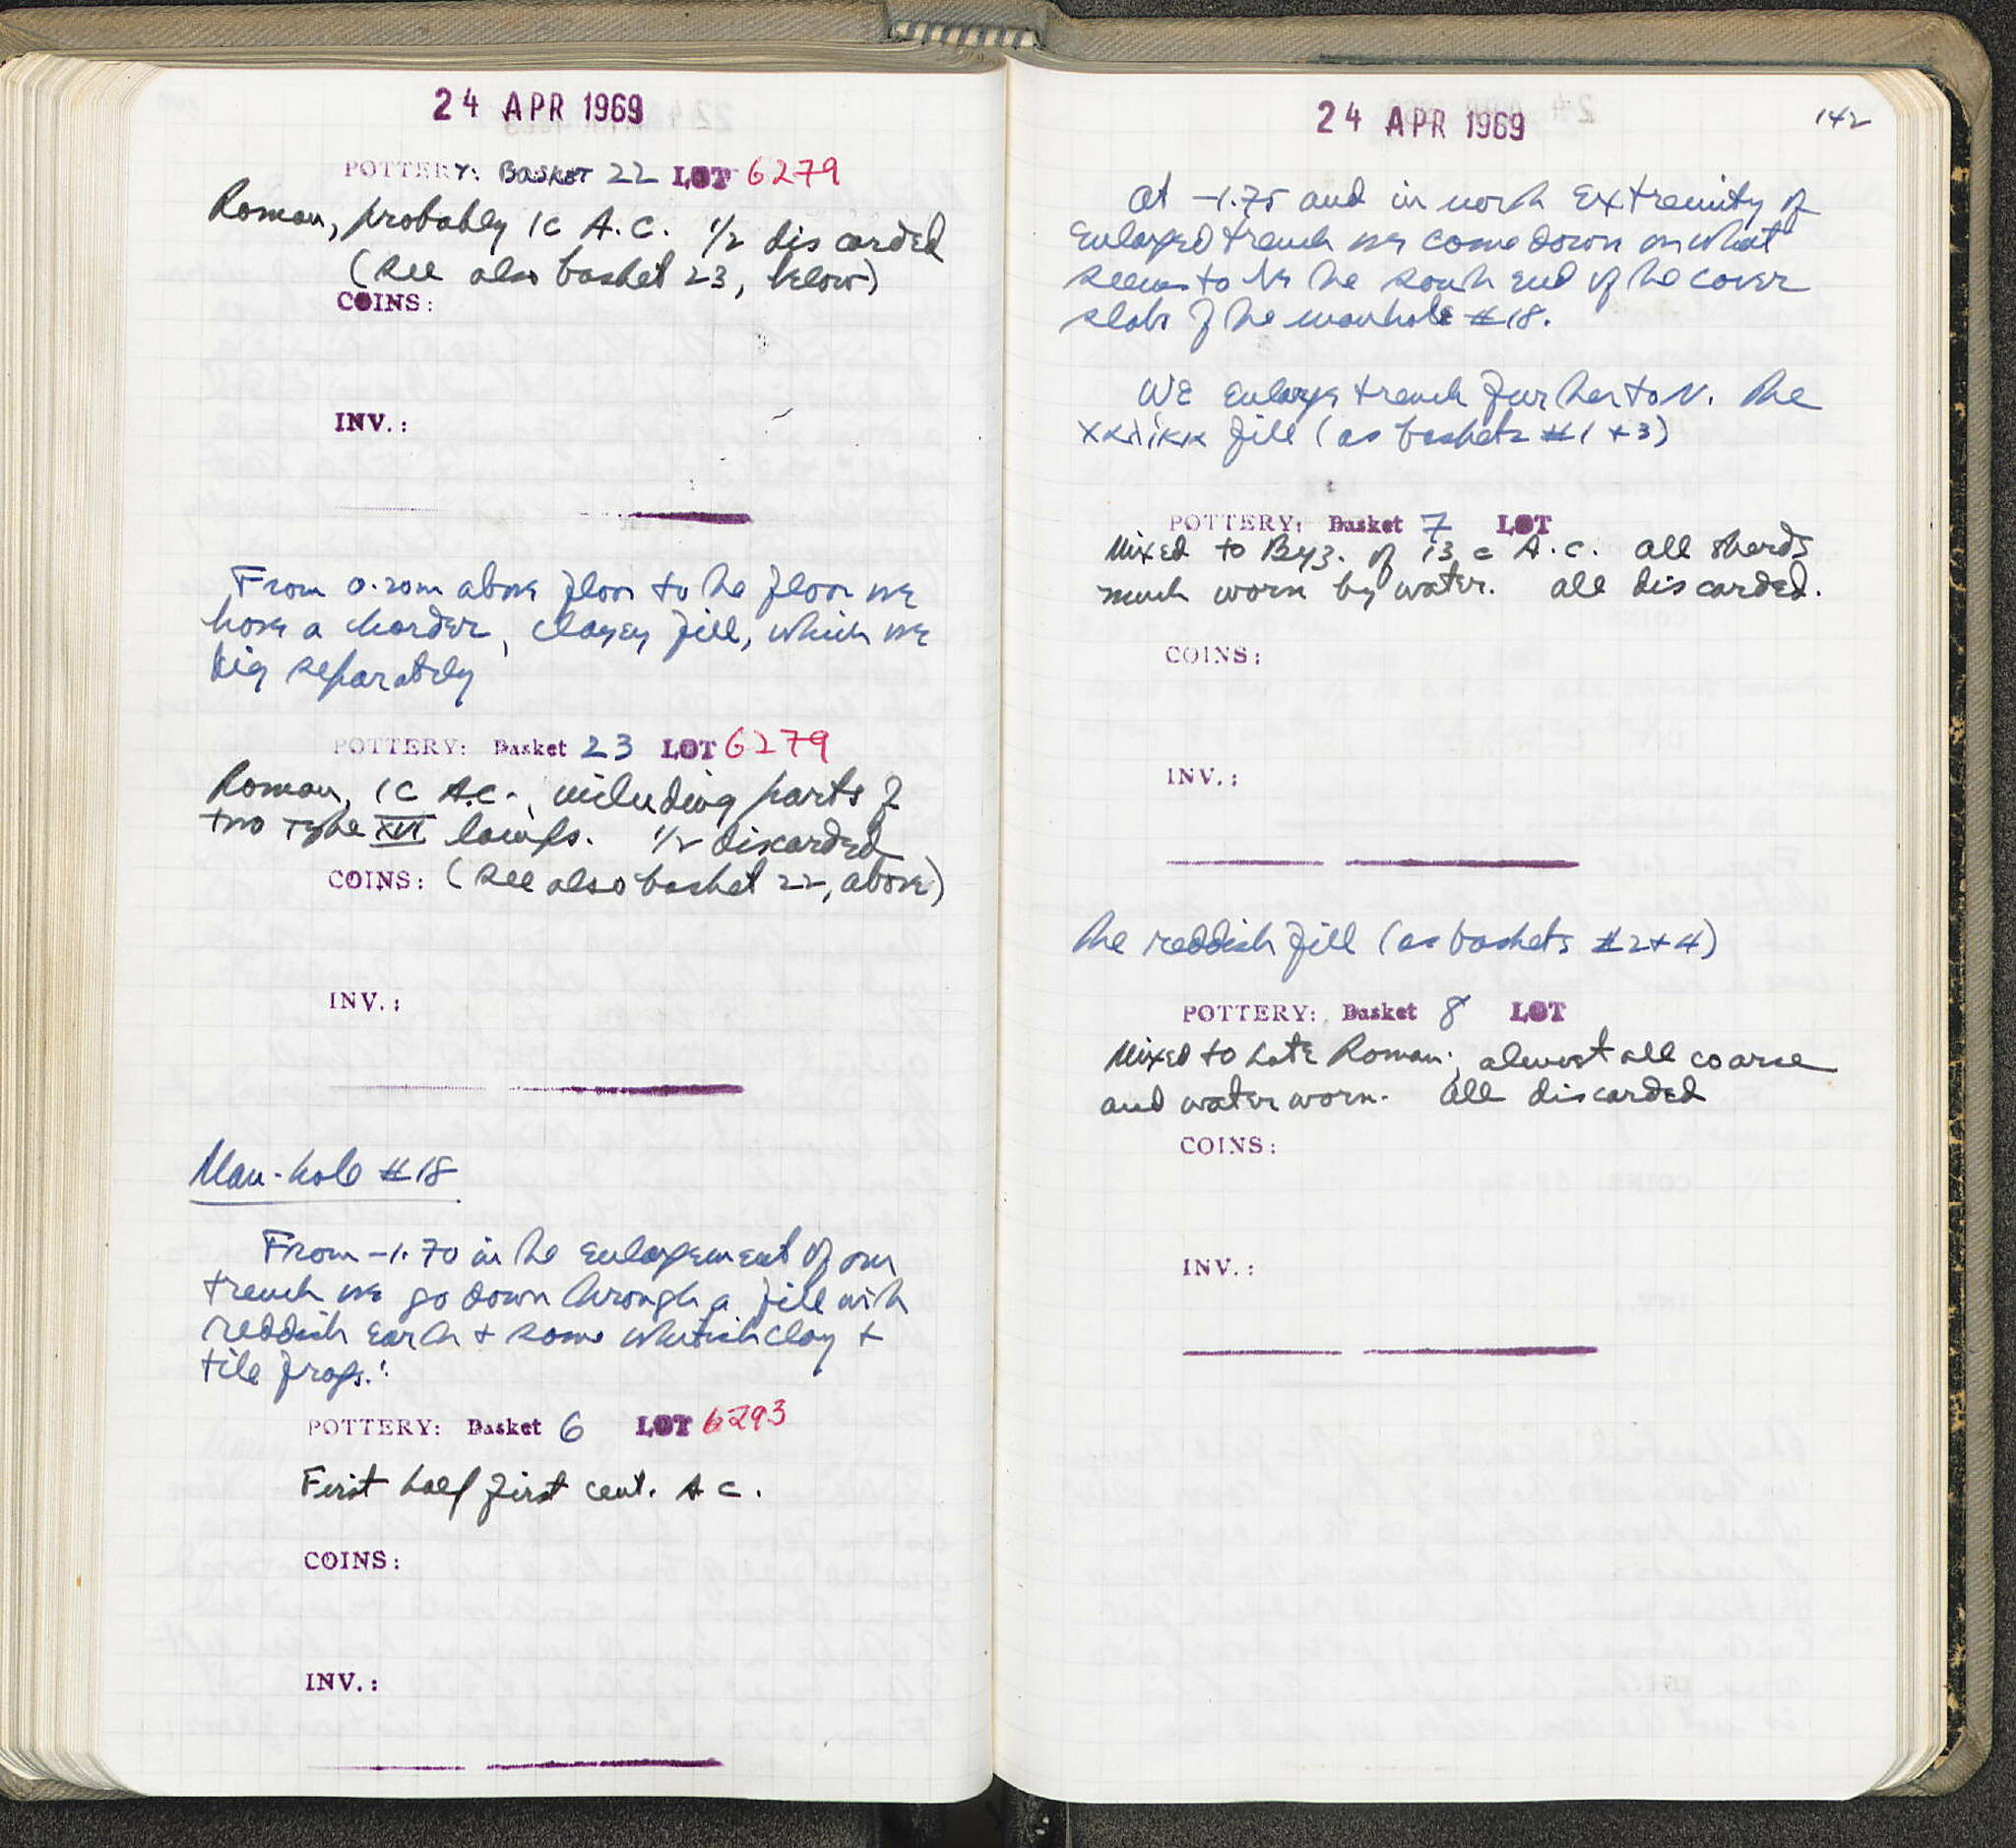 24 APR 1969
POTTERY: Basket 22 LOT 6279
Roman, probably 1c A.C. 1/2 discarded
(see also basket 23, below)
COINS:
INV.:
From 0.20m above floor to the floor we
have a harder, clayey fill, which we
dig separately
POTTERY: Basket 23 LOT 6279
Roman, 1c A.C., including parts of
two type XVI lamps. 1/2 discarded
COINS: (see also basket 22, above)
INV.:
Man-hole #18
From -1.70 in the enlargement of our
trench we go down through a fill with
reddish earth + some whitish clay +
tile frags.:
POTTERY: Basket 6 LOT 6293
First half first cent. A C.
COINS:
INV.:
24 APR 1969
142
At -1.75 and in north extremity of
enlarged trench we come down on what
seems to be the south end of the cover
slab of the manhole #18.
We enlarge trench further to N. The
χαλίκια fill (as baskets #1 + 3)
POTTERY: Basket 7 LOT
Mixed to Byz. of 13 c A.C. all sherds
much worn by water. all discarded.
COINS:
INV.:
The reddish fill (as baskets #2 + 4)
POTTERY: Basket 8 LOT
Mixed to Late Roman; almost all coarse
and water worn. all discarded
COINS:
INV.: